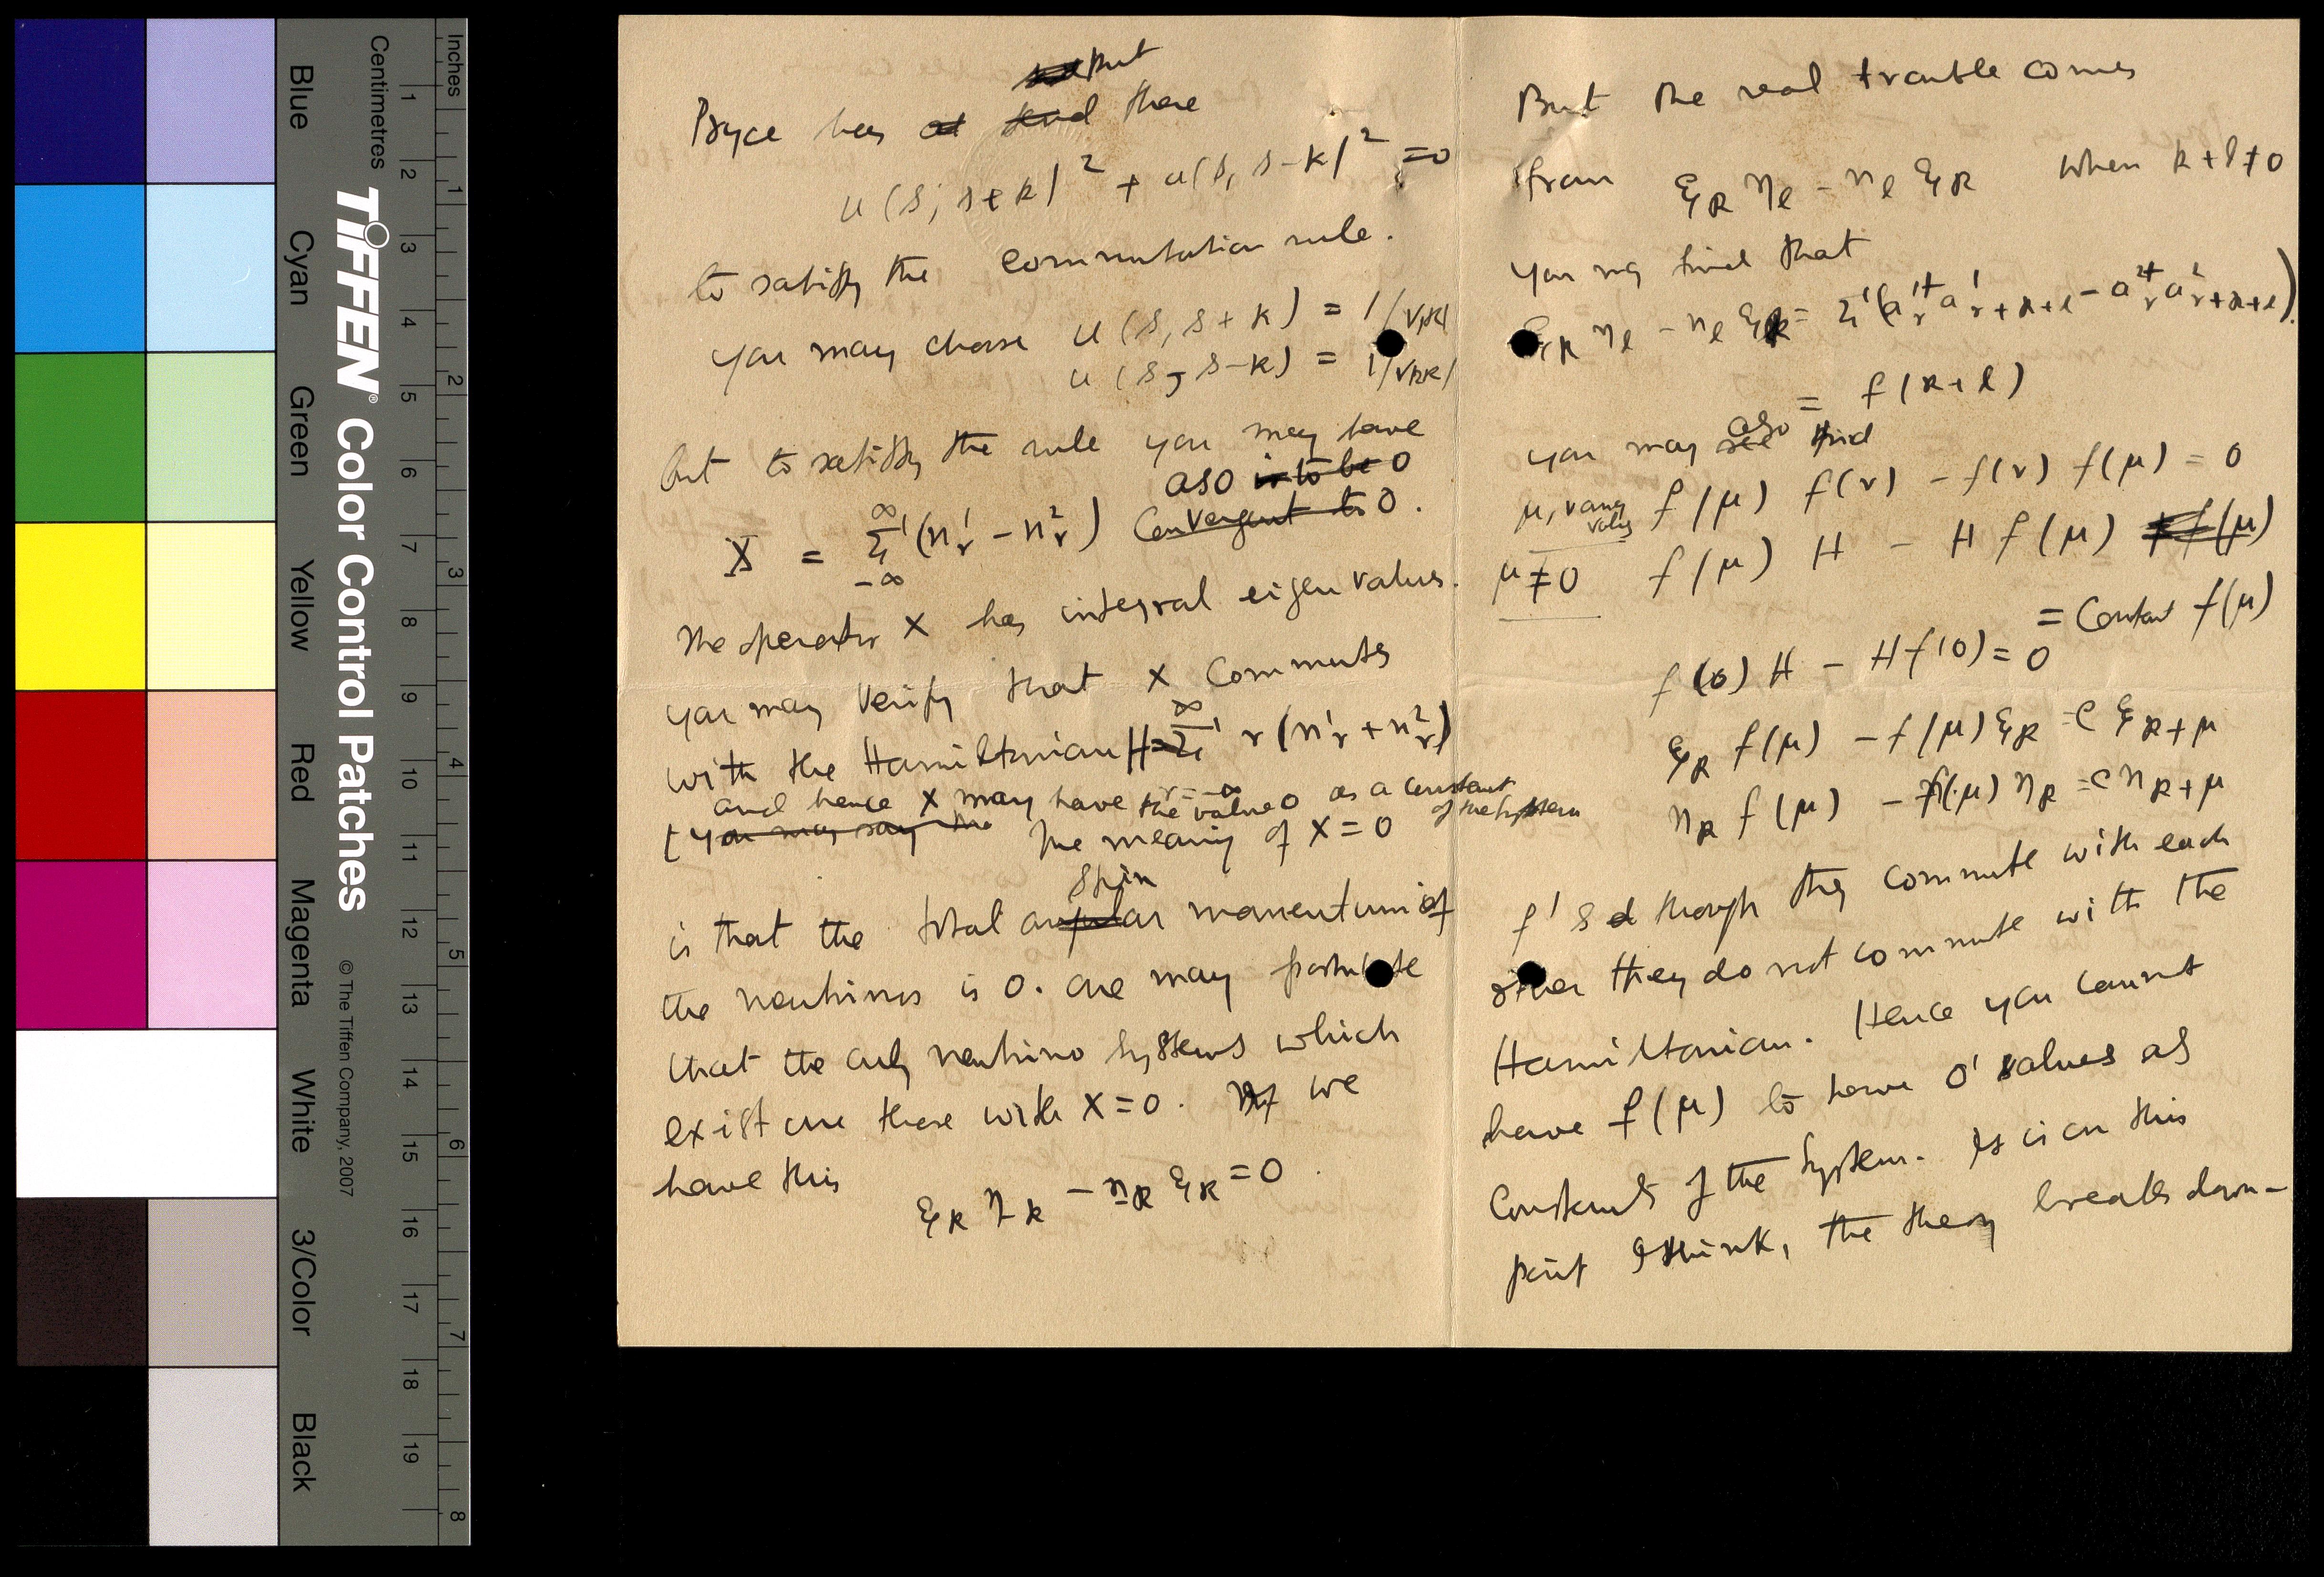 Blue
Cyan
Green
Yellow
Red
Magenta
White
3/Color
Black
TIFFEN® Color Control Patches
© The Tiffen Company, 2007
Centimetres
1
2
3
4
5
6
7
8
9
10
11
12
13
14
15
16
17
18
19
Inches
1
2
3
4
5
6
7
8
put
Pryce has at these
u(s, s+k)² + u(s, s-k)² = 0
to satisfy the commutation rule.
you may choose u(s, s+k) = 1/√|k|
u(s, s-k) = 1/√|k|
but to satisfy the rule you may have
also is to be 0
X = Σ'(n¹ᵣ - n²ᵣ) Convergent to 0.
∞
-∞
The operator X has integral eigenvalues.
you may verify that X commutes
with the Hamiltonian H = Σ' r(n¹ᵣ + n²ᵣ)
∞
r=-∞
and hence X may have the value 0 as a constant of the system
[You may say the The meaning of X=0
spin
is that the total angular momentum of
the neutrinos is 0. One may postulate
that the only neutrino systems which
exist are those with X=0. If we
have this
ξₖ ηₖ - ηₖ ξₖ = 0.
But the real trouble comes
from ξₖ ηₗ - ηₗ ξₖ when k+l≠0
you may find that
ξₖ ηₗ - ηₗ ξₖ = Σ'(a¹⁺ᵣ a¹ᵣ₊ₖ₊ₗ - a²⁺ᵣ a²ᵣ₊ₖ₊ₗ)
= f(k+l)
also
you may see find
μ, ν any values f(μ) f(ν) - f(ν) f(μ) = 0
μ≠0 f(μ) H - H f(μ) ≠ f(μ)
= Constant f(μ)
f(0) H - H f(0) = 0
ξₖ f(μ) - f(μ) ξₖ = c ξₖ₊μ
ηₖ f(μ) - f(μ) ηₖ = c ηₖ₊μ
f's though they commute with each
other they do not commute with the
Hamiltonian. Hence you cannot
have f(μ) to have 0 values as
Constants of the system. It is on this
point I think, the theory breaks down-